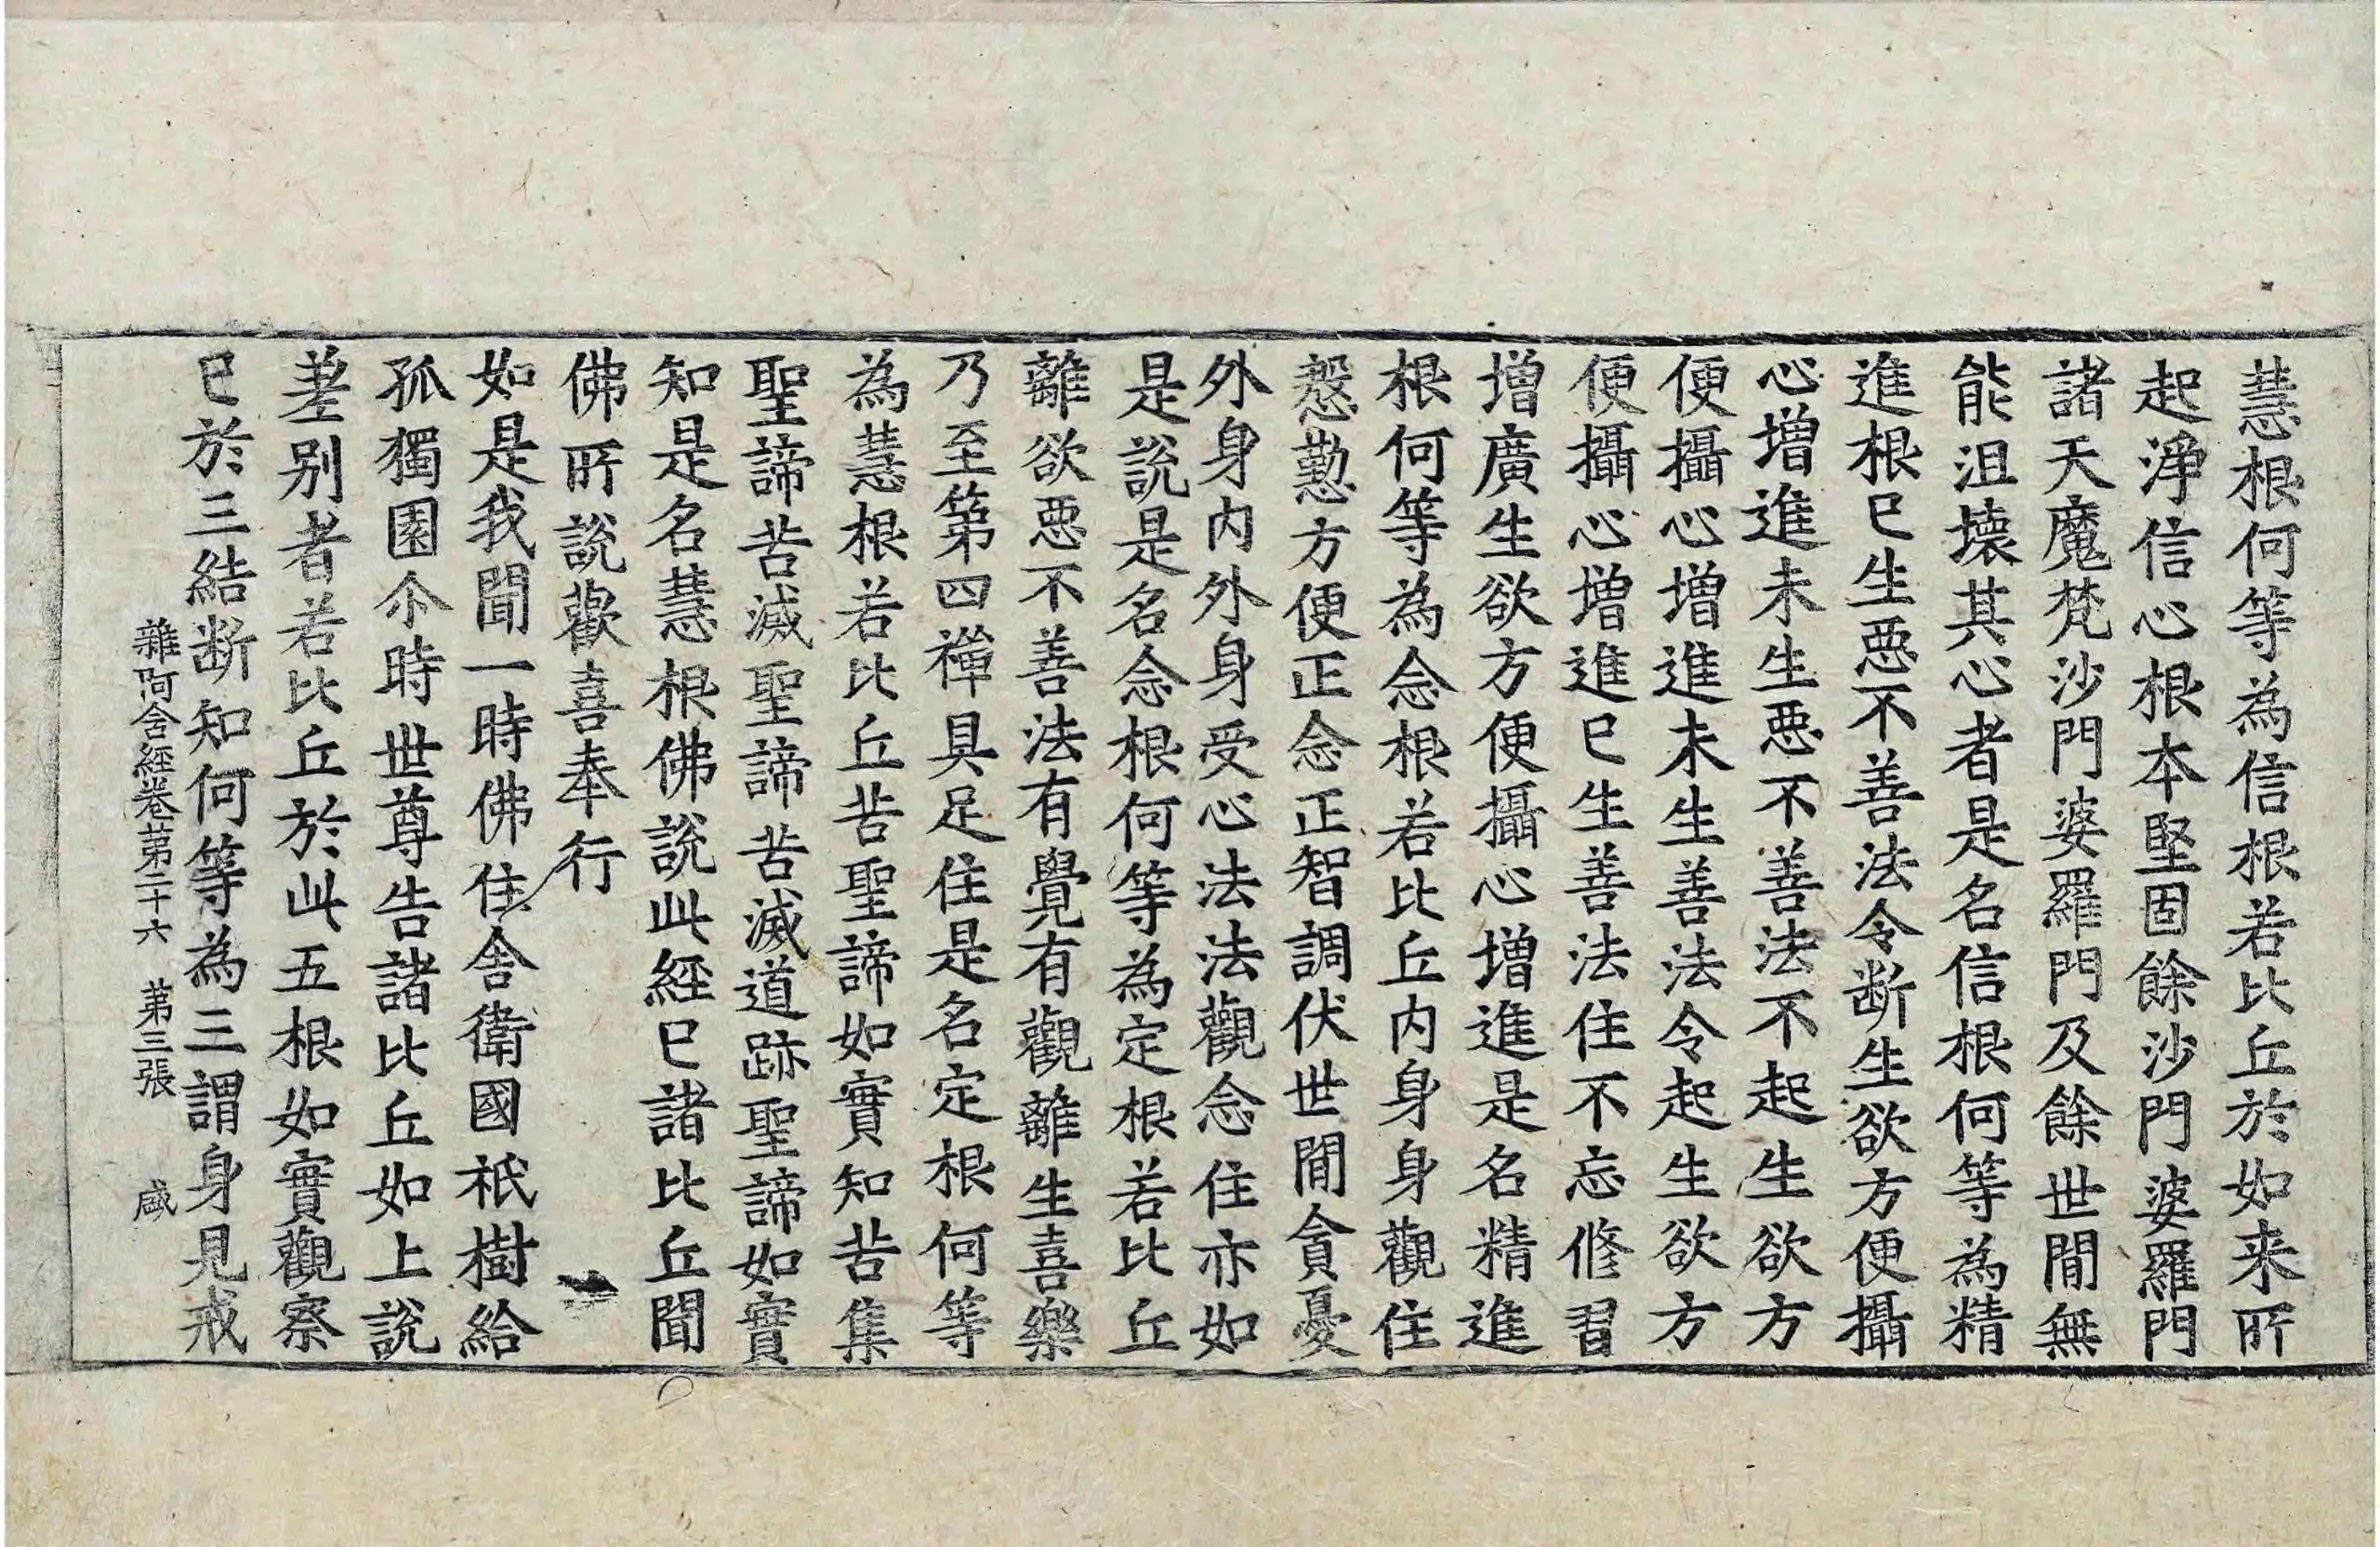 慧根何等為信根若比丘於如来所
起淨信心根本堅固餘沙門婆羅門
諸天魔梵沙門婆羅門及餘世間無
能沮壊其心者是名信根何等為精
進根已生悪不善法令断生欲方便攝
心增進未生悪不善法不起生欲方
便攝心增進未生善法令起生欲方
便攝心增進已生善法住不忘修習
增廣生欲方便攝心增進是名精進
根何等為念根若比丘内身身觀住
慇懃方便正念正智調伏世間貪憂
外身内外身受心法法觀念住亦如
是說是名念根何等為定根若比丘
離欲悪不善法有覺有觀離生喜樂
乃至第四禪具足住是名定根何等
為慧根若比丘苦聖諦如實知苦集
聖諦苦滅聖諦苦滅道跡聖諦如實
知是名慧根佛說此經已諸比丘聞
佛所說歡喜奉行
如是我聞一時佛住舍衛國祇樹給
孤獨園尒時世尊告諸比丘如上說
差别者若比丘於此五根如實觀察
已於三結断知何等為三謂身見戒
雜阿含經卷第二十六 第三張 盛